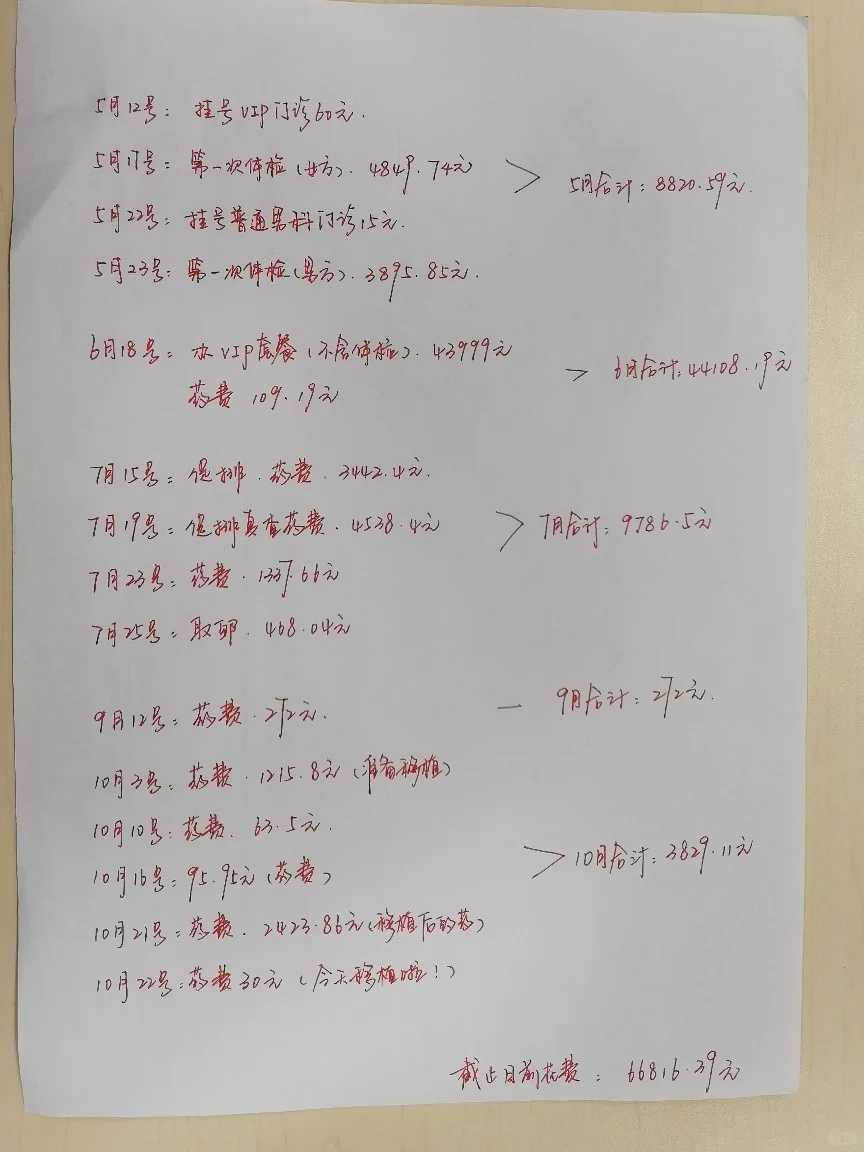 5月12号：挂号VIP门诊60元.
5月17号：第一次体检(女方). 4849.74元 > 5月合计：8820.59元.
5月22号：挂号普通男科门诊15元.
5月23号：第一次体检(男方). 3895.85元.
6月18号：办VIP套餐(不含体检). 43999元
药费 109.19元 > 6月合计：44108.19元
7月15号：促排.药费.3442.4元.
7月19号：促排复查药费.4538.4元 > 7月合计：9786.5元
7月23号：药费.1337.66元
7月25号：取卵.468.04元
9月12号：药费.272元. — 9月合计：272元.
10月3号：药费.1215.8元(准备移植)
10月10号：药费.63.5元.
10月16号：95.95元(药费) > 10月合计：3829.11元
10月21号：药费.2423.86元(移植后的药)
10月22号：药费30元(今天移植啦！)
截止目前花费：66816.39元